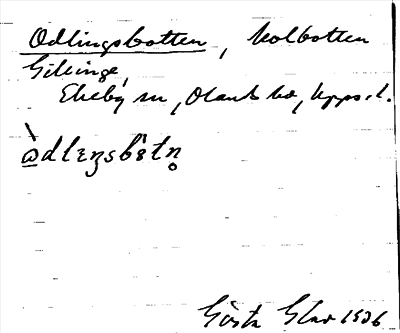 Odlingsbotten, kolbotten
Gillinge,
Ekeby sn, Olands hd, Upps. l.
ὰdlɩŋsbòtn̥
Gösta Eker 1936